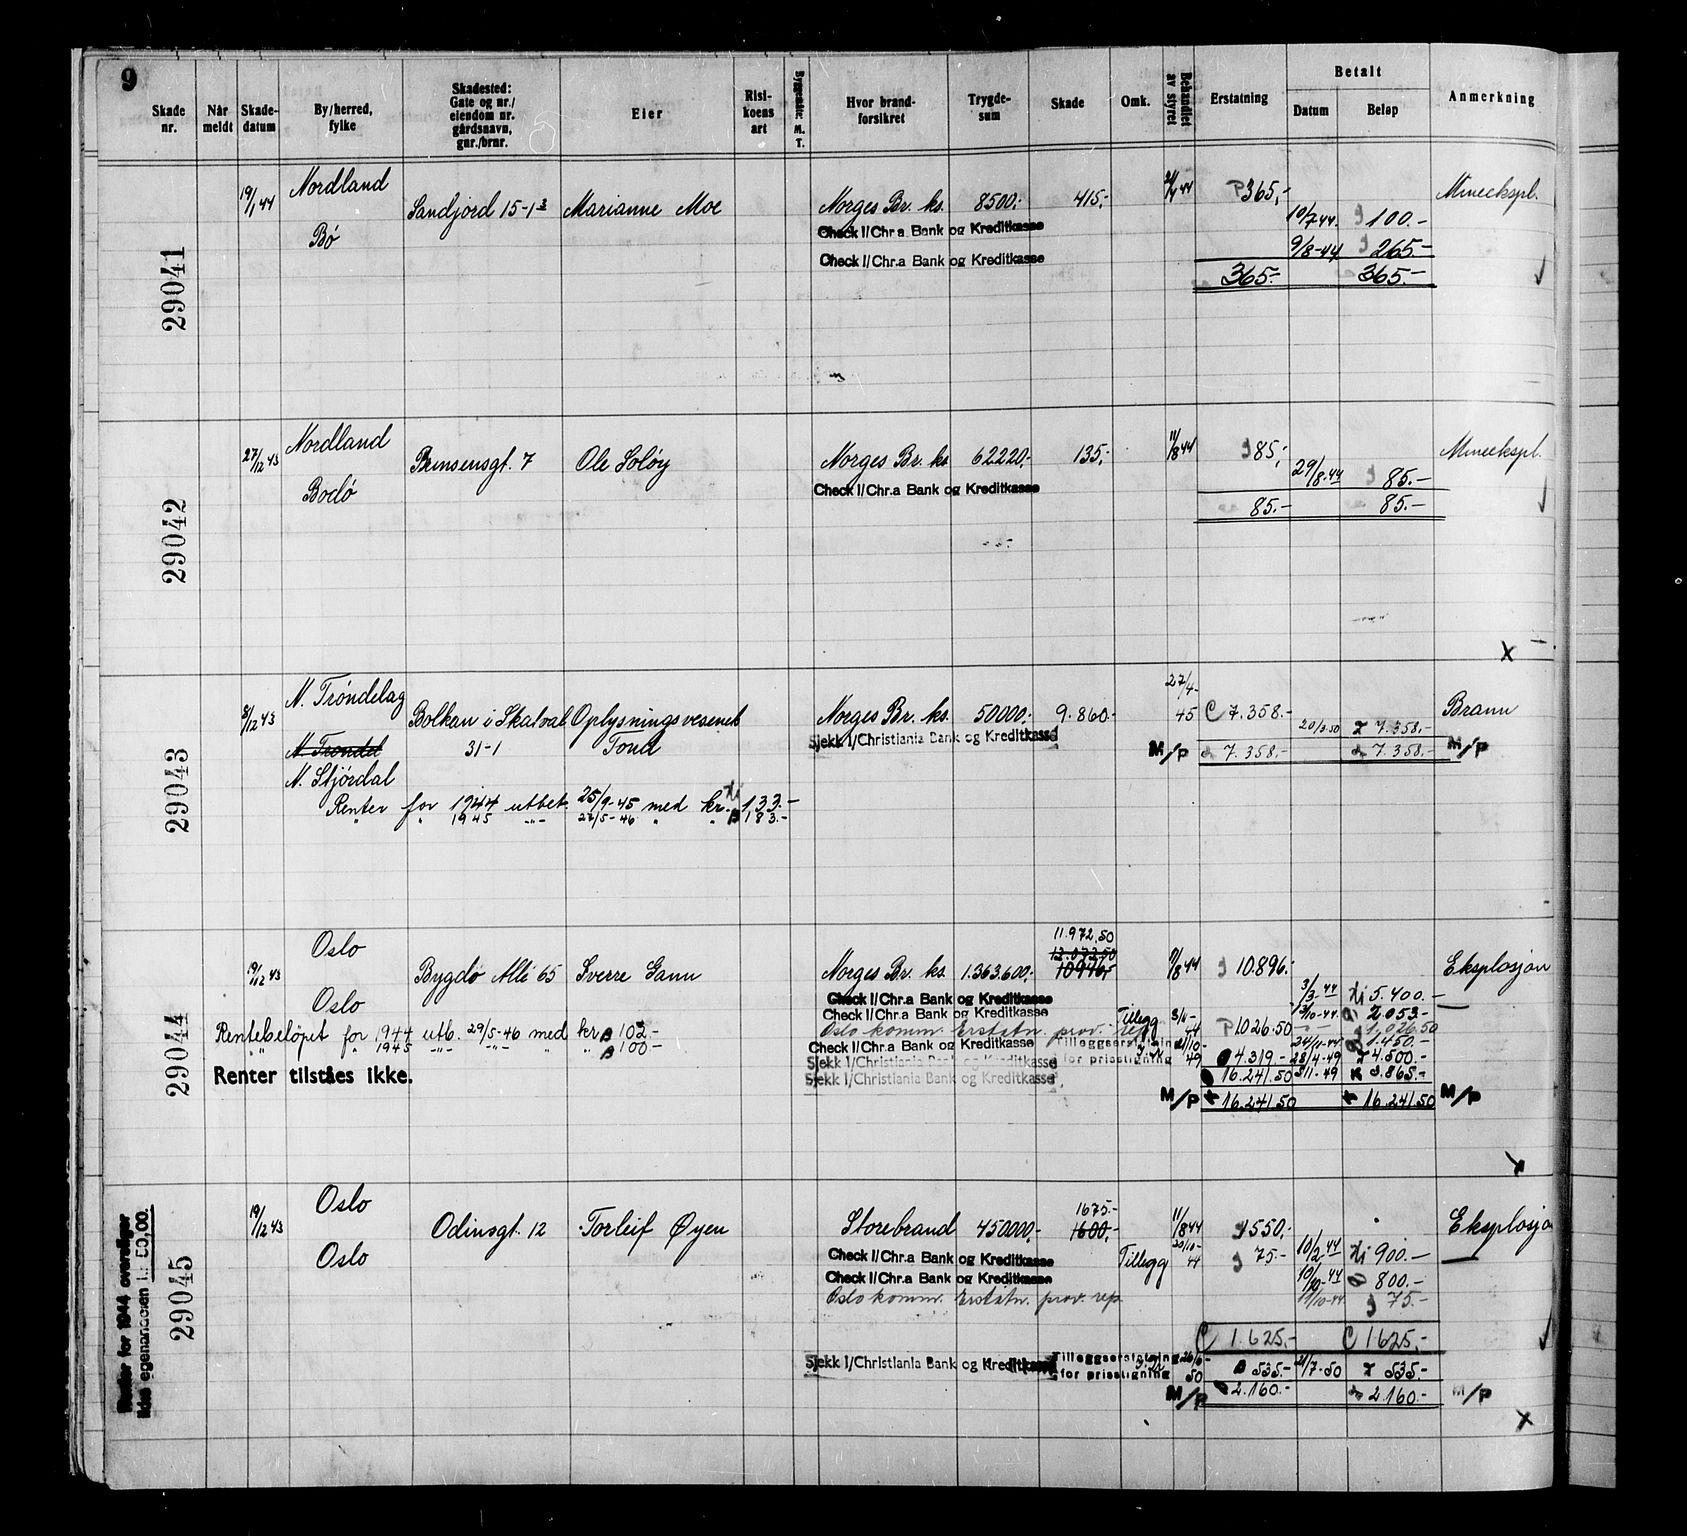 9
Skade nr.
Når meldt
Skade-datum
By/herred, fylke
Skadested: Gate og nr./ eiendom nr. gårdsnavn, gnr./brnr.
Eier
Risi-koens art
M. T.
Hvor brand-forsikret
Trygde-sum
Skade
Omk.
Behandlet av styret
Erstatning
Betalt
Datum
Beløp
Anmerkning
29041
19/1 44 Nordland Sandjord 15-1 3 Marianne Moe Norges Br. ks. 8500,- 415,- P 365,- Mineekspl.
Bø
Check I/Chr.a Bank og Kreditkasse 10/7 44. 100.-
Check I/Chr.a Bank og Kreditkasse 9/8-44 265.-
365.- 365.-
29042
27/12 43 Nordland Bensensgt. 7 Ole Soløy Norges Br. ks. 62220,- 135,- 11/8 44 85,- Mineekspl.
Bodø
Check I/Chr.a Bank og Kreditkasse 29/8.44 85.-
85.- 85.-
X
29043
8/12 43 N. Trøndelag Bolkan i Skatval Oplysningsvesenets Norges Br. ks. 50000,- 9.860.- 27/4-45 C 7.358.- Brann
31-1 Fond
Sjekk I/Christiania Bank og Kreditkasse 20/3.50 7.358.-
N. Trøndel
M/P 7.358.- 7.358.- M/P
N. Stjørdal
Renter for 1944 utbet. 25/9-45 med kr. 133.-
" " 1945 -"- 27/5-46 " " 183.-
29044
Oslo
11.972,50
13.073,50
10996,-
19/12 43 Bygdø Allé 65 Sverre Gann Norges Br. ks. 1.363.600,- 9/8 44 10896,- Eksplosjon
Oslo
Check I/Chr.a Bank og Kreditkasse 3/3-44 5.400.-
Check I/Chr.a Bank og Kreditkasse Tillegg 2.053.-
Rentebeløpet for 1944 utb. 29/5-46 med kr. 102.-
Oslo komm. Erstatn. prov. rep. P 1026.50 1.026.50
" " 1945 -"- -"- " " 100.-
Check I/Chr.a Bank og Kreditkasse Tilleggserstatning 24/11-44 1.450.-
Sjekk I/Christiania Bank og Kreditkasse for prisstigning 49 4.319.- 28/4-49 4.500.-
Renter tilståes ikke.
Sjekk I/Christiania Bank og Kreditkasse 16.241.50 3/11-49 3.865.-
M/P 16.241.50 16.241.50 M/P
X
29045
Renter for 1944 overstiger
ikke egenandelen kr. 50,00.
Oslo
1675.-
19/12 43 Odinsgt. 12 Torleif Øyen Storebrand 450000,- 1600,- 11/8 44 1550,- Eksplosjon
Oslo
Check I/Chr.a Bank og Kreditkasse Tillegg 20/10-44 75.- 10/2-44 900.-
Check I/Chr.a Bank og Kreditkasse 10/10-44 800.-
Oslo komm. Erstatn. prov. rep. 75.-
C 1.625,- C 1625,-
Sjekk I/Christiania Bank og Kreditkasse Tilleggserstatning for prisstigning 26/6-50 535.- 21/7-50 535.-
M/P 2.160.- 2.160.- M/P
X